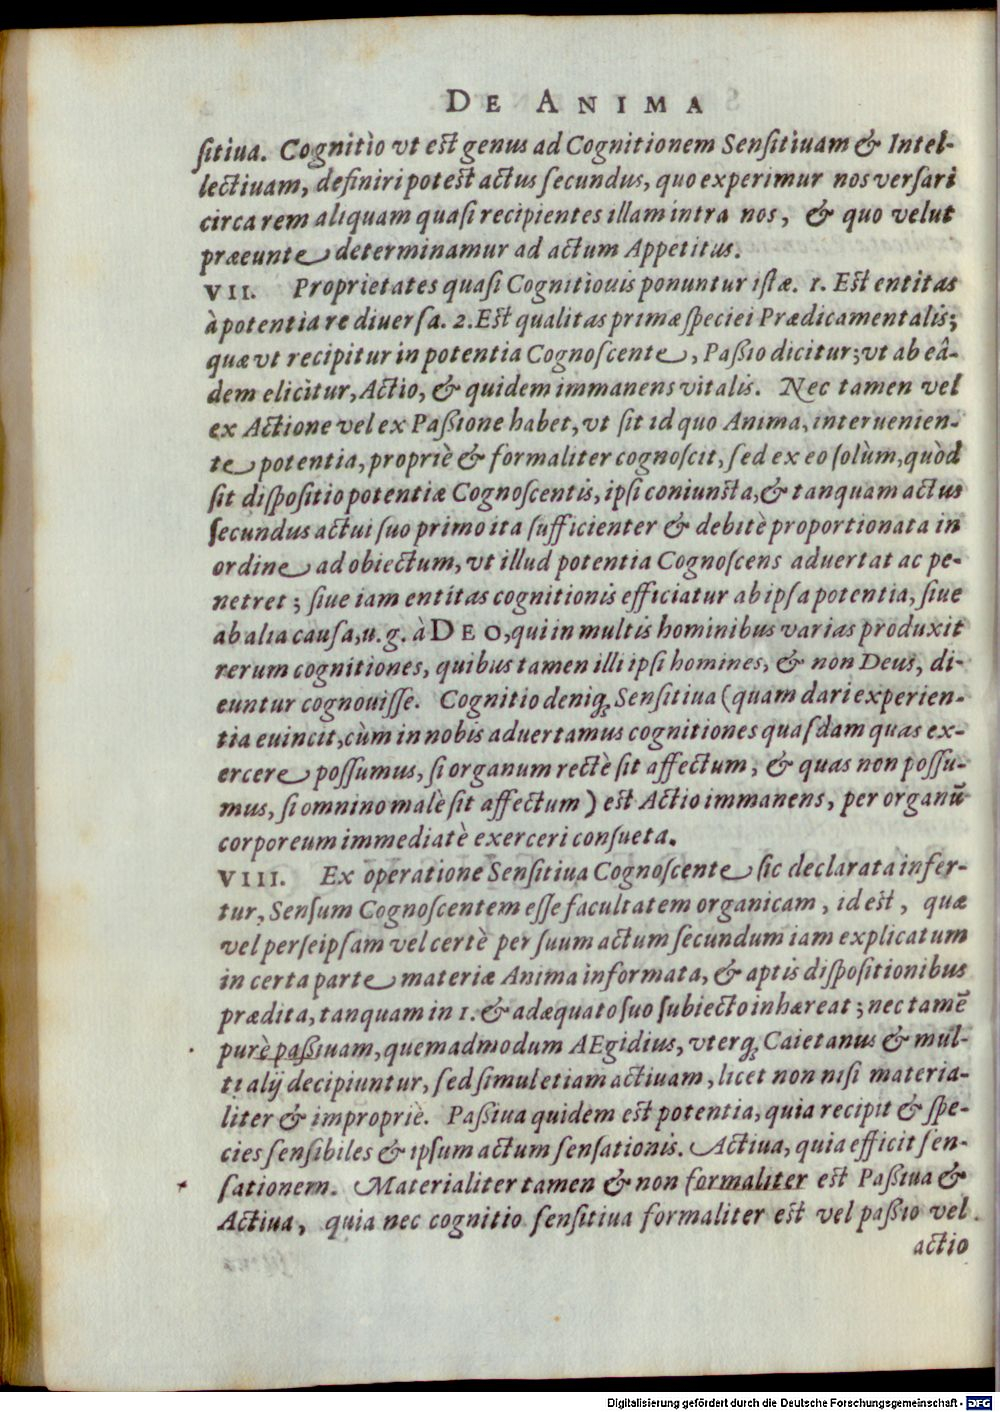 DE ANIMA
ſitiua. Cognitìo vt eſt genus ad Cognitionem Senſitìuam & Intel-
lectiuam, definiri poteſt actus ſecundus, quo experimur nos verſari
circa rem aliquam quaſi recipientes illam intra nos, & quo velut
præeunte determinamur ad actum Appetitus.
VII. Proprietates quaſi Cognitìouis ponuntur iſtæ. 1. Eſt entitas
à potentia re diuerſa. 2. Eſt qualitas primæ ſpeciei Prædicamentalis;
quæ vt recipitur in potentia Cognoſcente, Paßio dicitur; vt ab eâ-
dem elicitur, Actio, & quidem immanens vitalis. Nec tamen vel
ex Actione vel ex Paßione habet, vt ſit id quo Anima, interuenien-
te potentia, propriè & formaliter cognoſcit, ſed ex eo ſolùm, quòd
ſit diſpoſitio potentiæ Cognoſcentis, ipſi coniunƈta, & tanquam actus
ſecundus actui ſuo primo ita ſufficienter & debitè proportionata in
ordine ad obiectum, vt illud potentia Cognoſcens aduertat ac pe-
netret; ſiue iam entitas cognitionis efficiatur ab ipſa potentia, ſiue
ab alia cauſa, u. g. à DEO, qui in multis hominibus varias produxit
rerum cognitiones, quibus tamen illi ipſi homines, & non Deus, di-
euntur cognouiſſe. Cognitio deniqꝫ Senſitiua (quam dari experien-
tia euincit, cùm in nobis aduertamus cognitiones quaſdam quas ex-
ercere poſſumus, ſi organum rectè ſit affectum, & quas non poſſu-
mus, ſi omnino malè ſit affectum) eſt Actio immanens, per organũ
corporeum immediatè exerceri conſueta.
VIII. Ex operatione Senſitiua Cognoſcente ſic declarata infer-
tur, Senſum Cognoſcentem eſſe facultatem organicam, id eſt, quæ
vel per ſeipſam vel certè per ſuum actum ſecundum iam explicatum
in certa parte materiæ Anima informata, & aptis diſpoſitionibus
prædita, tanquam in 1. & adæquato ſuo ſubiecto inhæreat; nec tamẽ
purè paßiuam, quemadmodum AEgidius, vterqꝫ Caietanus & mul-
ti alij decipiuntur, ſed ſimul etiam actiuam, licet non niſi materia-
liter & impropriè. Paßiua quidem eſt potentia, quia recipit & ſpe-
cies ſenſibiles & ipſum actum ſenſationis. Actiua, quia efficit ſen-
ſationem. Materialiter tamen & non formaliter eſt Paßiua &
Actiua, quia nec cognitio ſenſitiua formaliter eſt vel paßio vel
actio
Digitalisierung gefördert durch die Deutsche Forschungsgemeinschaft - DFG